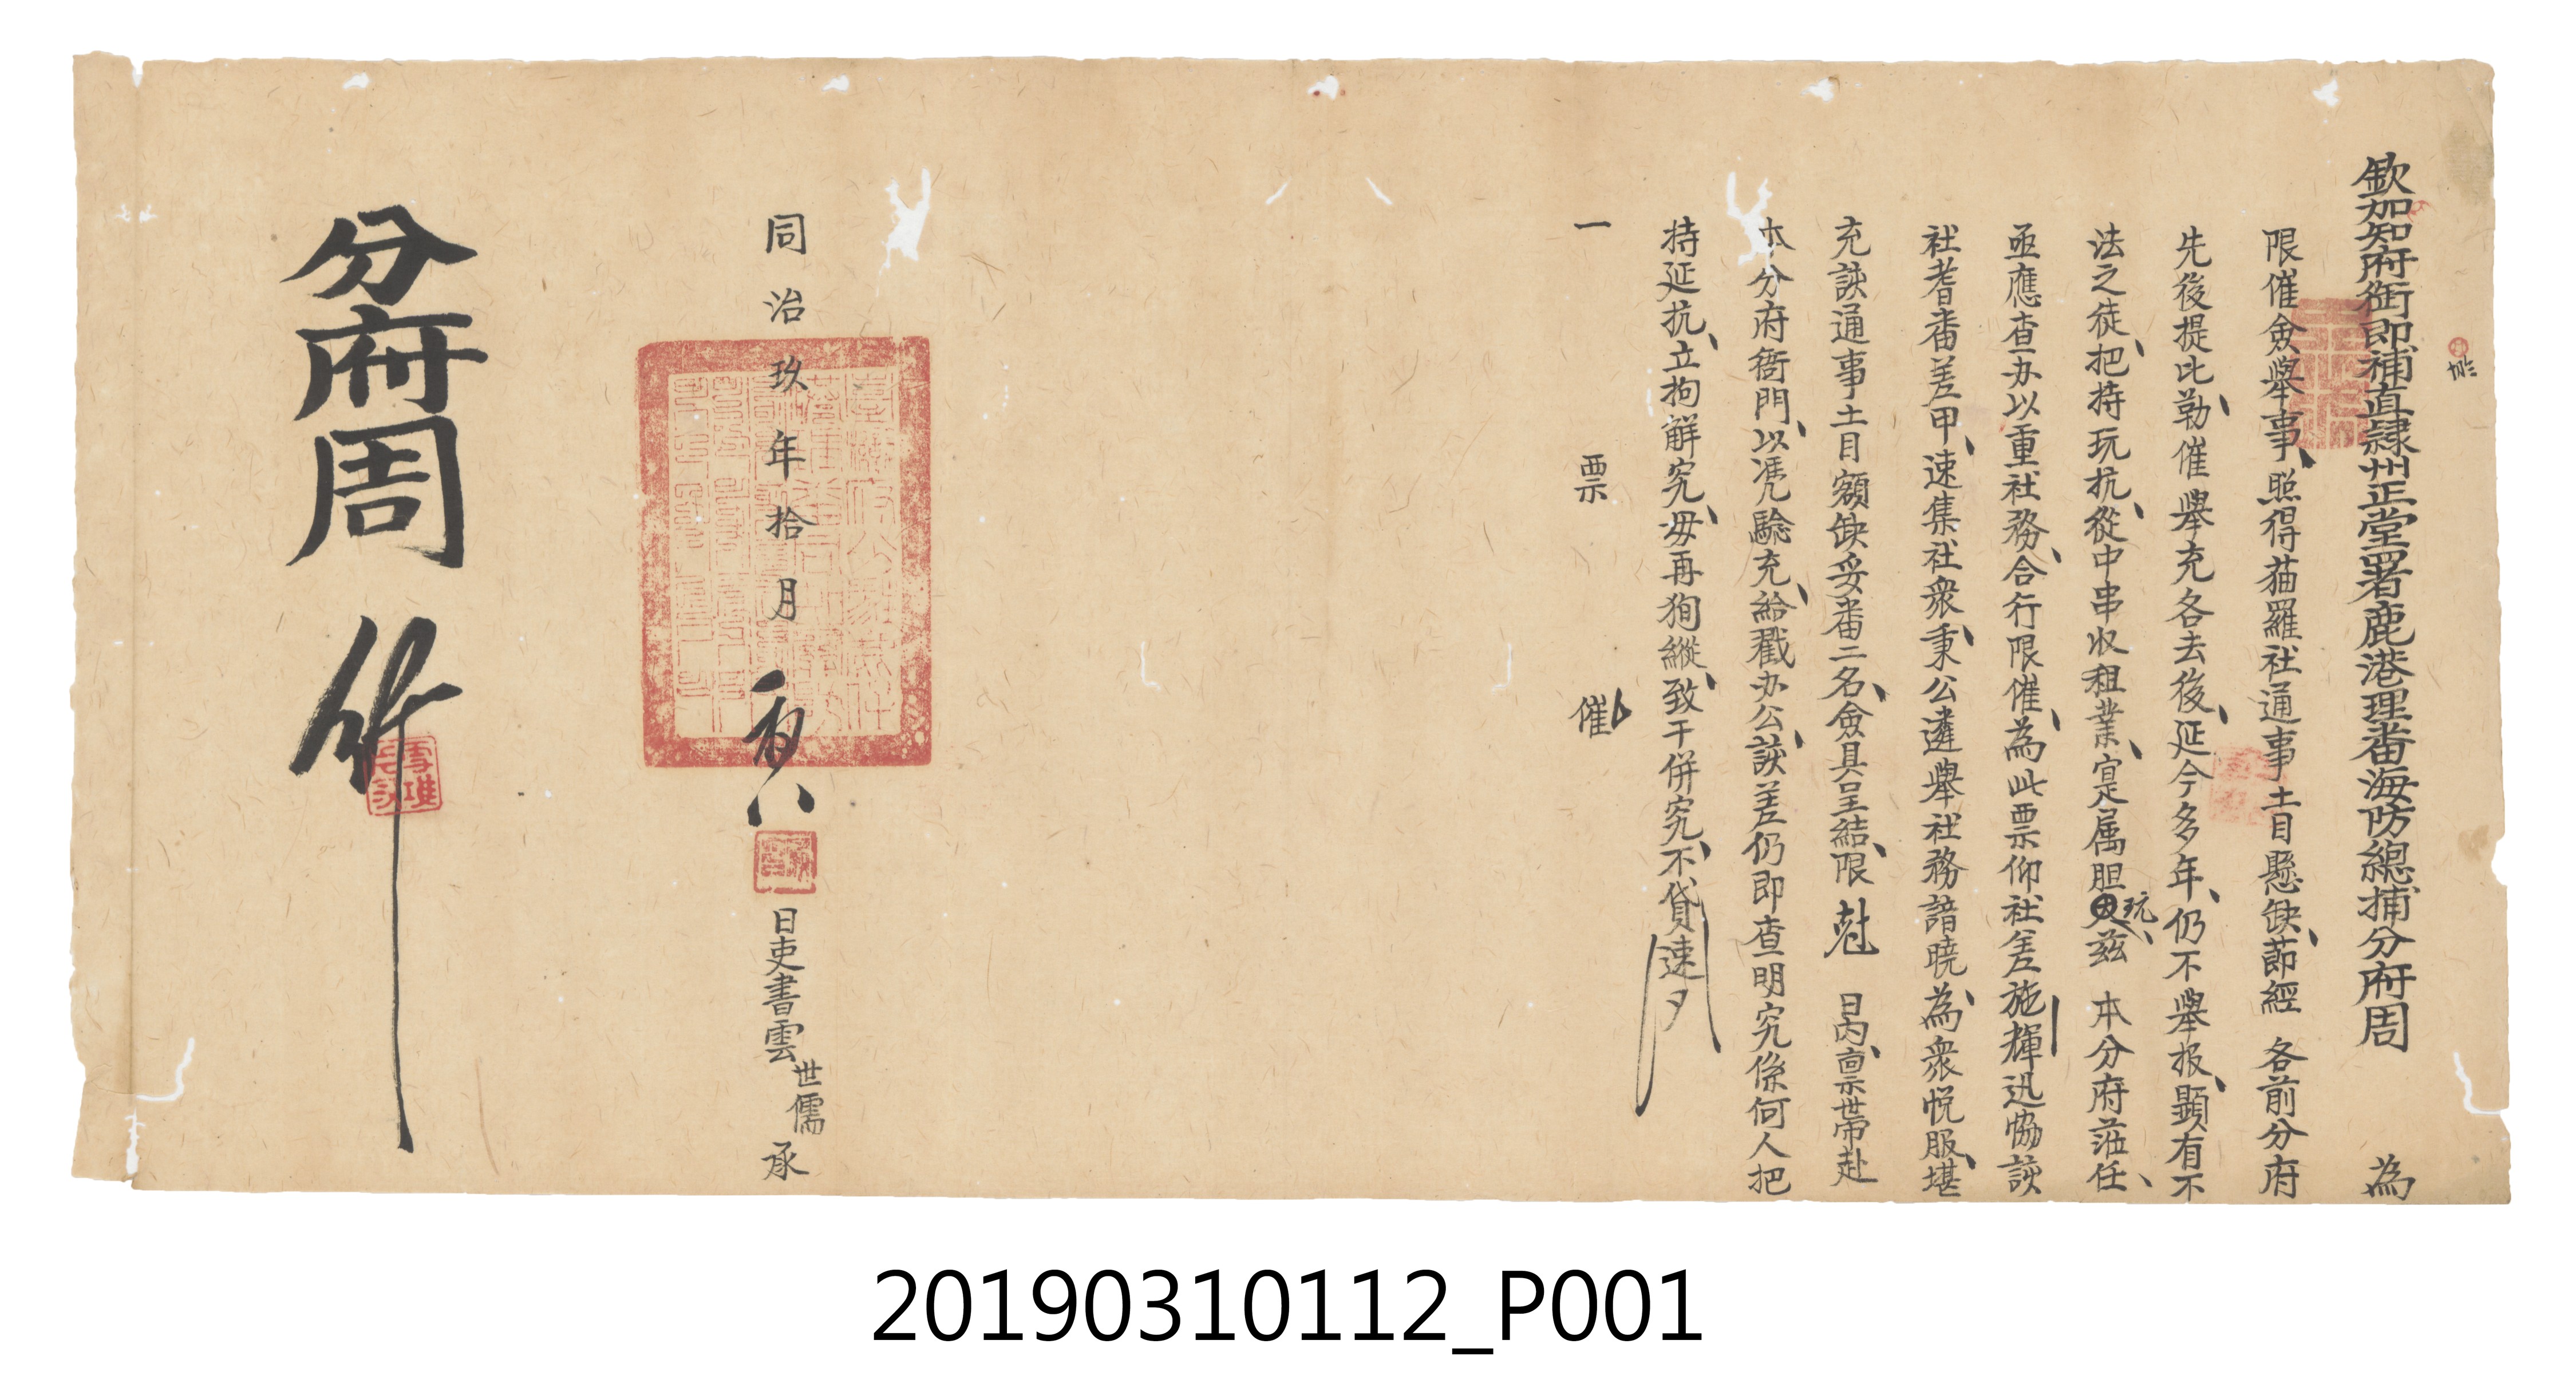 欽加知府銜即補直隸州正堂署鹿港理番海防總捕分府周　為
限催僉舉事、照得猫羅社通事土目懸缺、節經　各前分府
先後提比、勒催舉充各去後、延今多年、仍不舉报、顯有不
法之徒、把持玩抗、從中串收租業、寔属胆玩、兹　本分府蒞任、
亟應查办以重社務、合行限催、為此票仰社差施輝迅協該
社耆番差甲、速集社衆、秉公遴舉社務諳曉、為衆悅服、堪
充該通事土目額缺妥番二名、僉具呈結、限　日內、禀帶赴
本分府衙門、以凭驗充、給戳办公、該差仍即查明究係何人把
持延抗、立拘解究、毋再狥縱、致干併究、不貸速夕
一　票　催
同治玖年拾月　八　日吏書雲世儒承
分府周　
20190310112_P001